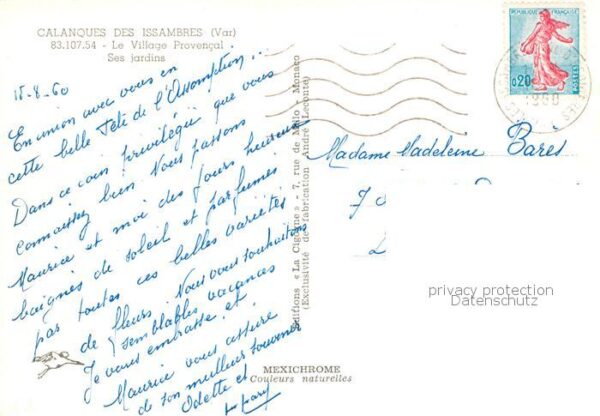 CALANQUES DES ISSAMBRES (Var)
83.107.54 - Le Village Provençal
Ses jardins
15-8-60
En union avec vous en
cette belle Fête de l'Assomption...
Dans ce coin privilégié que vous
connaissez bien. Nous passons
Maurice et moi des jours heureux
baignés de soleil et parfumés
par toutes ces belles variétés
de fleurs. Nous vous souhaitons
semblables vacances
Je vous embrasse et
Maurice vous assure
de son meilleur souvenir
Odette et
Editions « La Cigogne » - 7, rue de Millo - Monaco
(Exclusivité de fabrication André Leconte)
REPUBLIQUE FRANÇAISE
0,20
POSTES
1960
Madame Madeleine Barès
70
privacy protection
Datenschutz
MEXICHROME
Couleurs naturelles